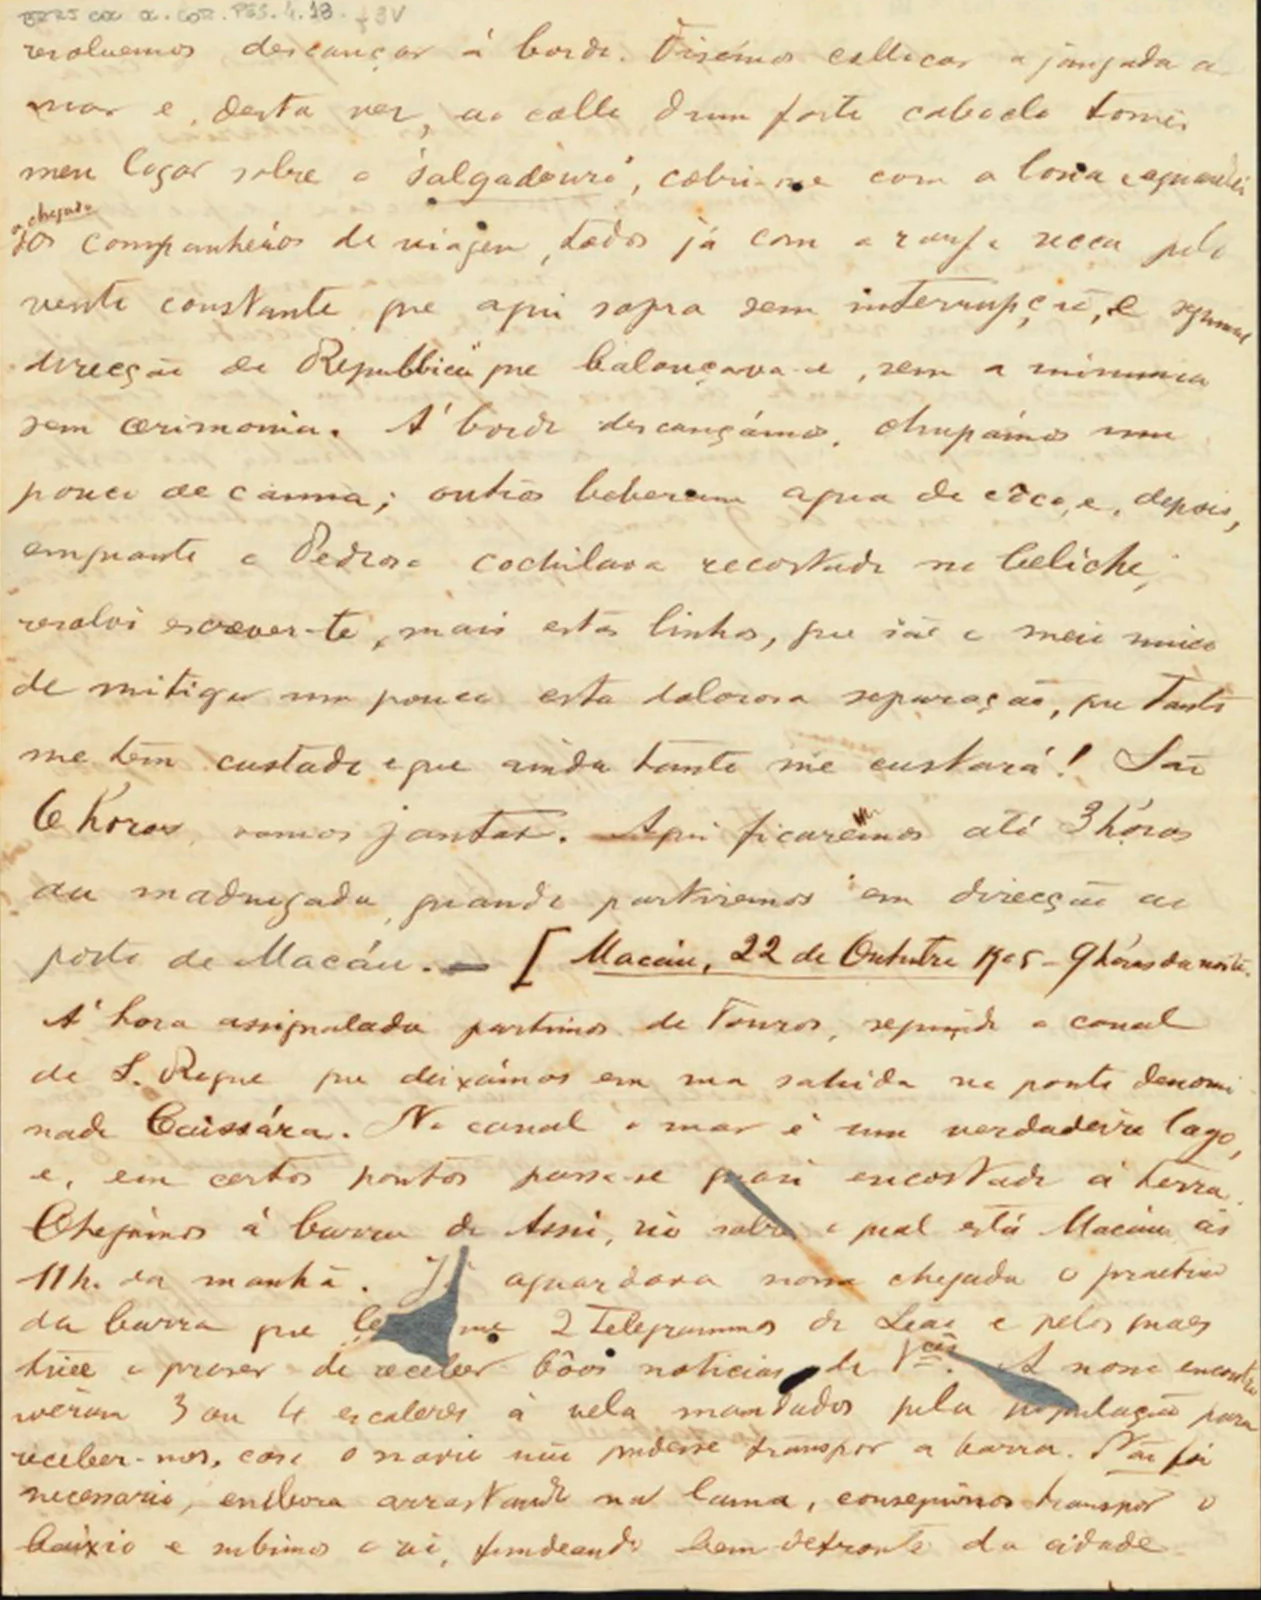 resolvemos descançar á bordo. Fisémos collocar a jangada a
mar e, desta vez, ao collo dum forte caboclo tomei
meu logar sobre o "salgadouro", cobri-me com a lona e aguardei
a chegada
dos companheiros de viagem, todos já com a roupa secca pelo
vento constante que aqui sopra sem interrupção, e seguimos
direcção do "Republica" que balouçava-se, sem a minima
sem cerimonia. Á bordo descançámos, chupámos um
pouco de canna; outros beberam agua de côco, e, depois,
emquanto o Pedroso cochilava recostado no beliche,
resolvi escrever-te, mais estas linhas, que são o meio unico
de mitigar um pouco esta dolorosa separação, que tanto
me tem custado e que ainda tanto me custará! São
6 horas, vamos jantar. Aqui ficaremos até 3 horas
da madrugada, quando partiremos em direcção ao
porto de Macáu. — [ Macáu, 22 de Outubro 1905 - 9 horas da noite.
Á hora assignalada partimos de Touros, seguindo o canal
de S. Roque que deixámos em sua sahida no ponto denomi
nado Caissára. No canal o mar é um verdadeiro lago,
e, em certos pontos passa-se quasi encostado á terra.
Chegámos á barra do Assú, rio sobre o qual está Macáu ás
11 h. da manhã. Já aguardava nossa chegada o pratico
da barra que me 2 telegrammas do Leão e pelos quaes
tive o praser de receber bôas noticias de Vcês. A nosso encontro
vieram 3 ou 4 escaleres á vela mandados pela população para
receber-nos, caso o navio não pudesse transpor a barra. Não foi
necessario, embora arrastando na lama, conseguimos transpor o
baixio e subimos o rio, fundeando bem defronte da cidade